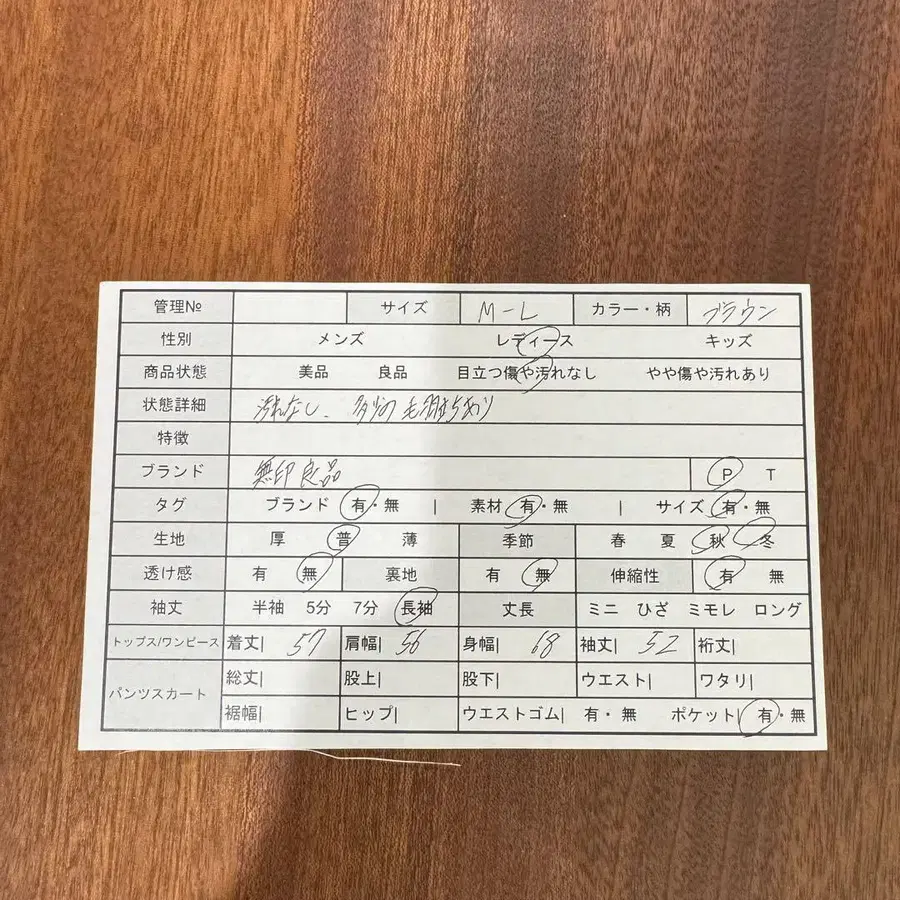 管理№ サイズ M-L カラー・柄 ブラウン
性別 メンズ レディース キッズ
商品状態 美品 良品 目立つ傷や汚れなし やや傷や汚れあり
状態詳細 汚れなし、多少の毛羽立ちあり
特徴
ブランド 無印良品 P T
タグ ブランド 有・無 | 素材 有・無 | サイズ 有・無
生地 厚 普 薄 季節 春 夏 秋 冬
透け感 有 無 裏地 有 無 伸縮性 有 無
袖丈 半袖 5分 7分 長袖 丈長 ミニ ひざ ミモレ ロング
トップス/ワンピース 着丈| 57 肩幅| 56 身幅| 68 袖丈| 52 裄丈|
パンツスカート 総丈| 股上| 股下| ウエスト| ワタリ|
裾幅| ヒップ| ウエストゴム| 有・無 ポケット| 有・無